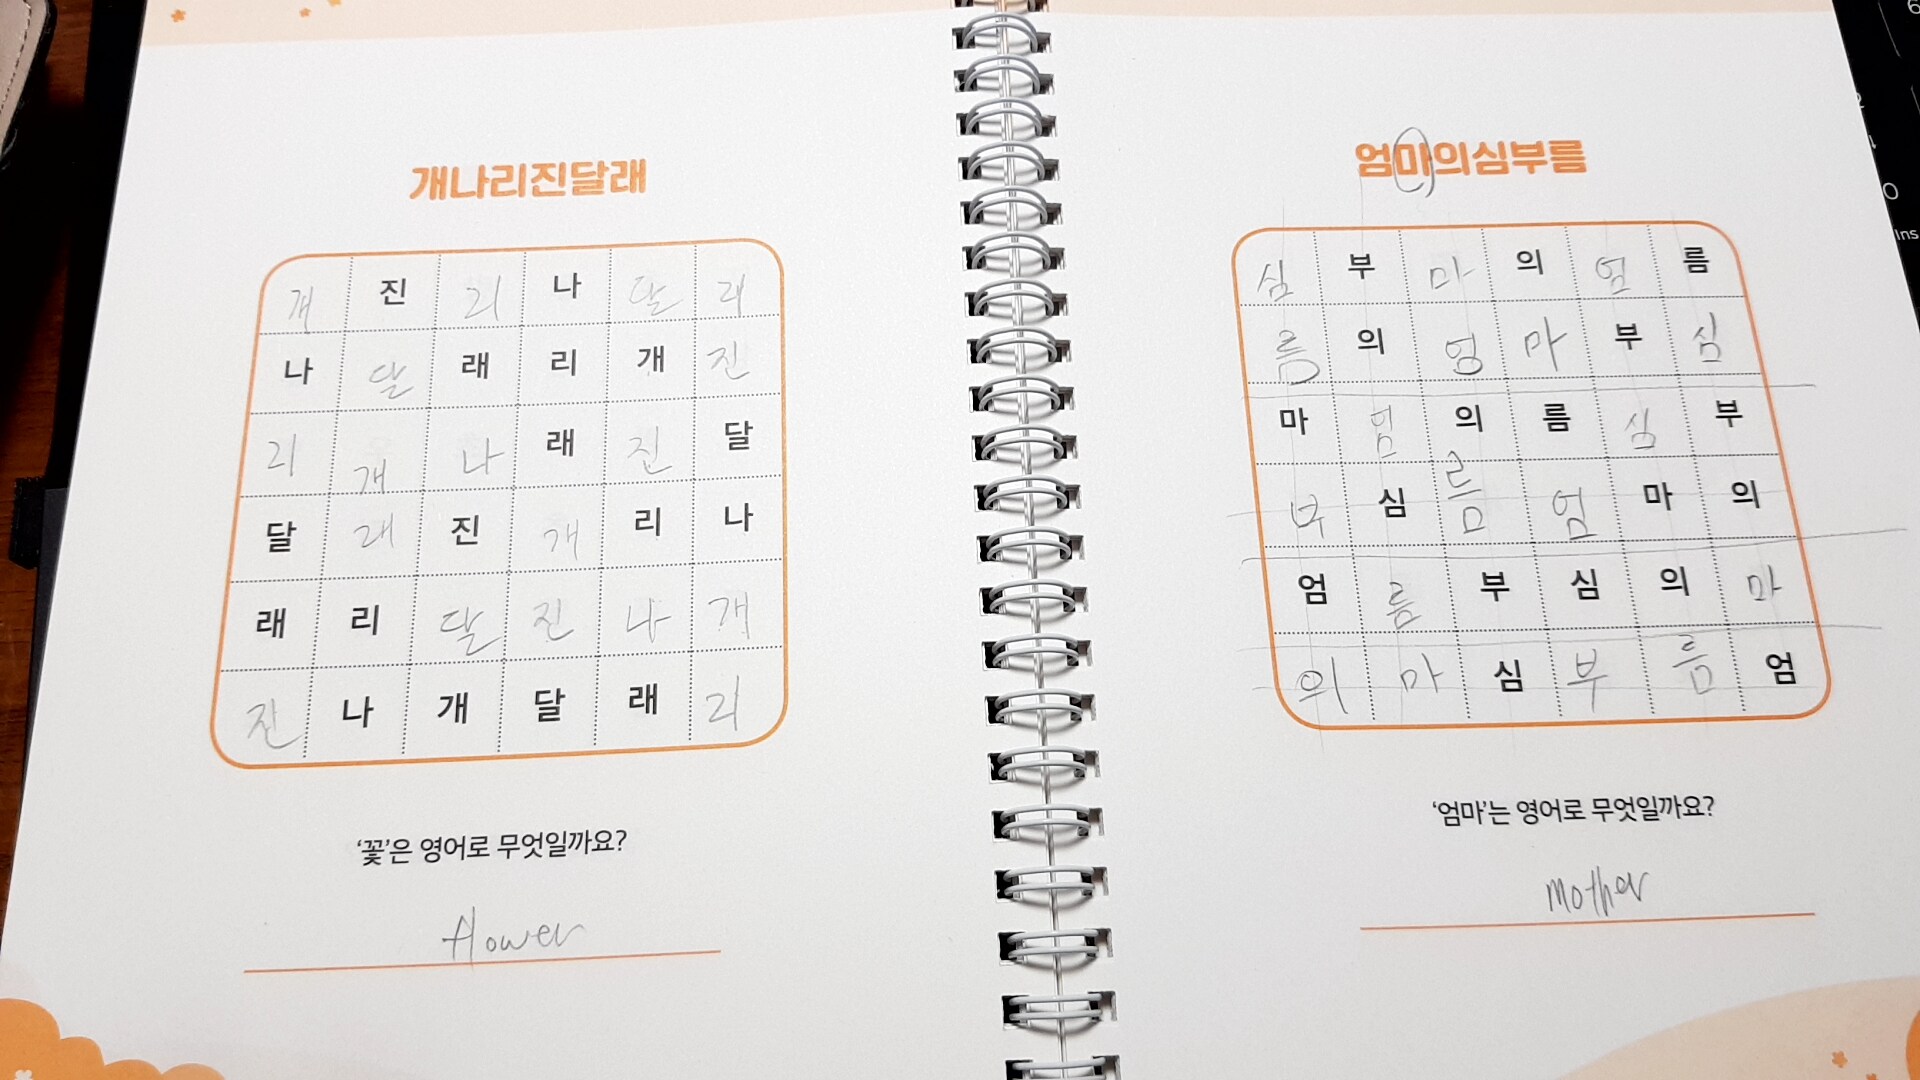 개나리진달래
개 진 리 나 달 래
나 달 래 리 개 진
리 개 나 래 진 달
달 래 진 개 리 나
래 리 달 진 나 개
진 나 개 달 래 리
‘꽃’은 영어로 무엇일까요?
flower
엄마의심부름
심 부 마 의 엄 름
름 의 엄 마 부 심
마 엄 의 름 심 부
부 심 름 엄 마 의
엄 름 부 심 의 마
의 마 심 부 름 엄
‘엄마’는 영어로 무엇일까요?
Mother
6
0
Ins